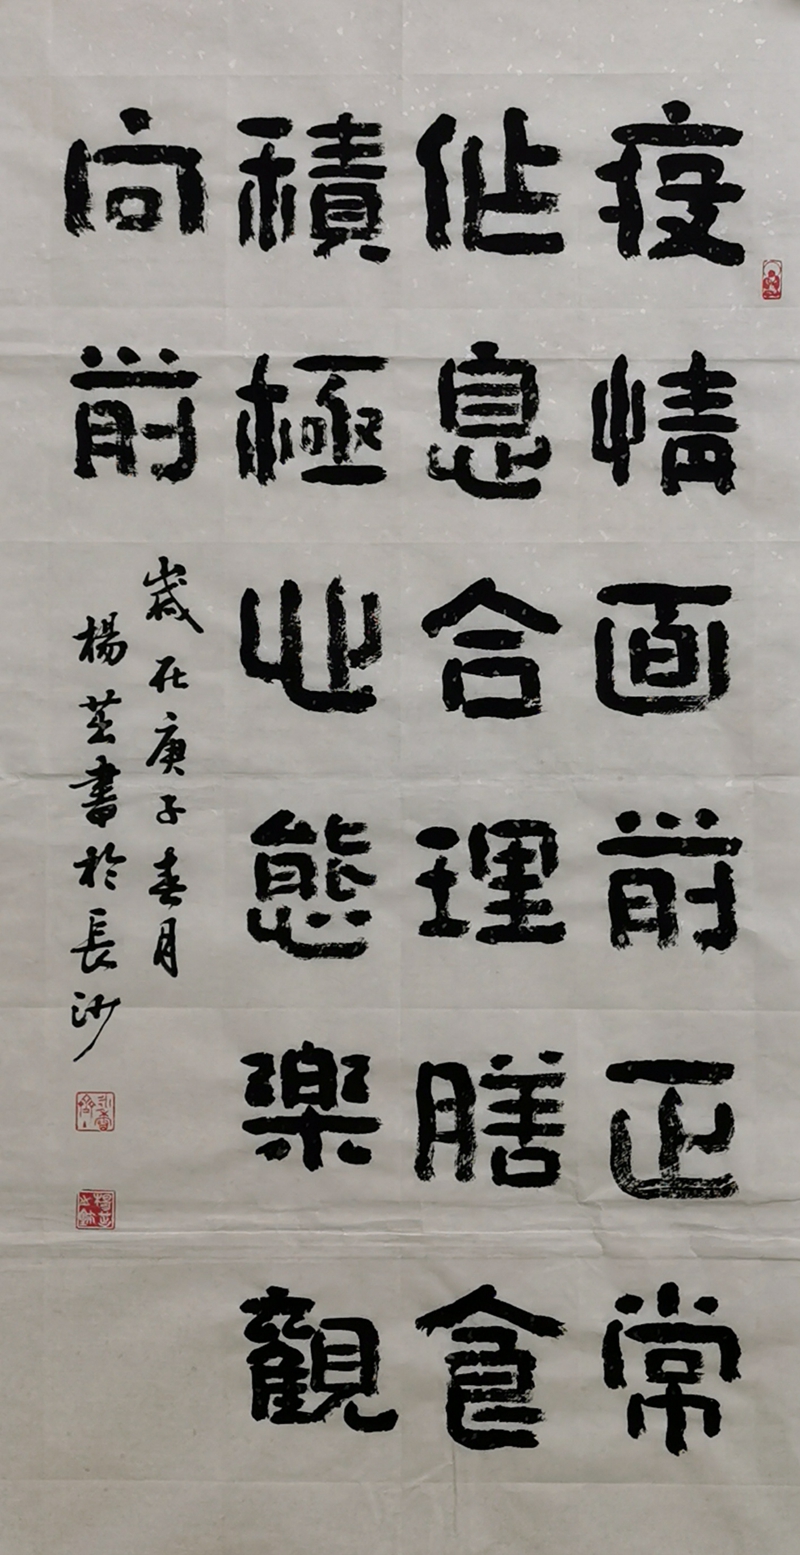 疫情面前正常
作息合理膳食
積極心態樂觀
向前
歲在庚子春月
楊書於長沙